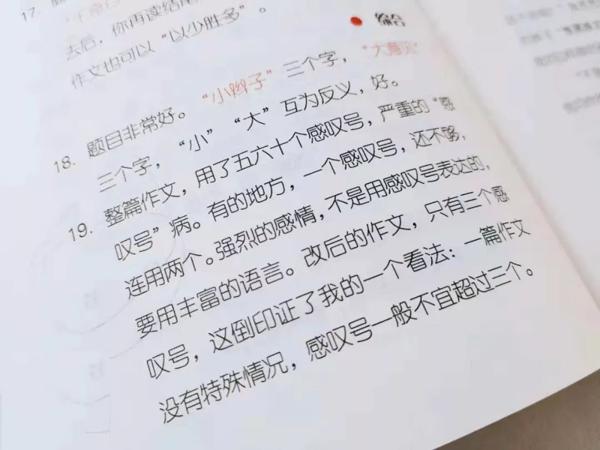 17.
去后，你再读结尾
作文也可以“以少胜多”。
18. 题目非常好。“小辫子”三个字，“大意义”
三个字，“小”“大”互为反义，好。
19. 整篇作文，用了五六十个感叹号，严重的“感
叹号”病。有的地方，一个感叹号，还不够，
连用两个。强烈的感情，不是用感叹号表达的，
要用丰富的语言。改后的作文，只有三个感
叹号，这倒印证了我的一个看法：一篇作文
没有特殊情况，感叹号一般不宜超过三个。